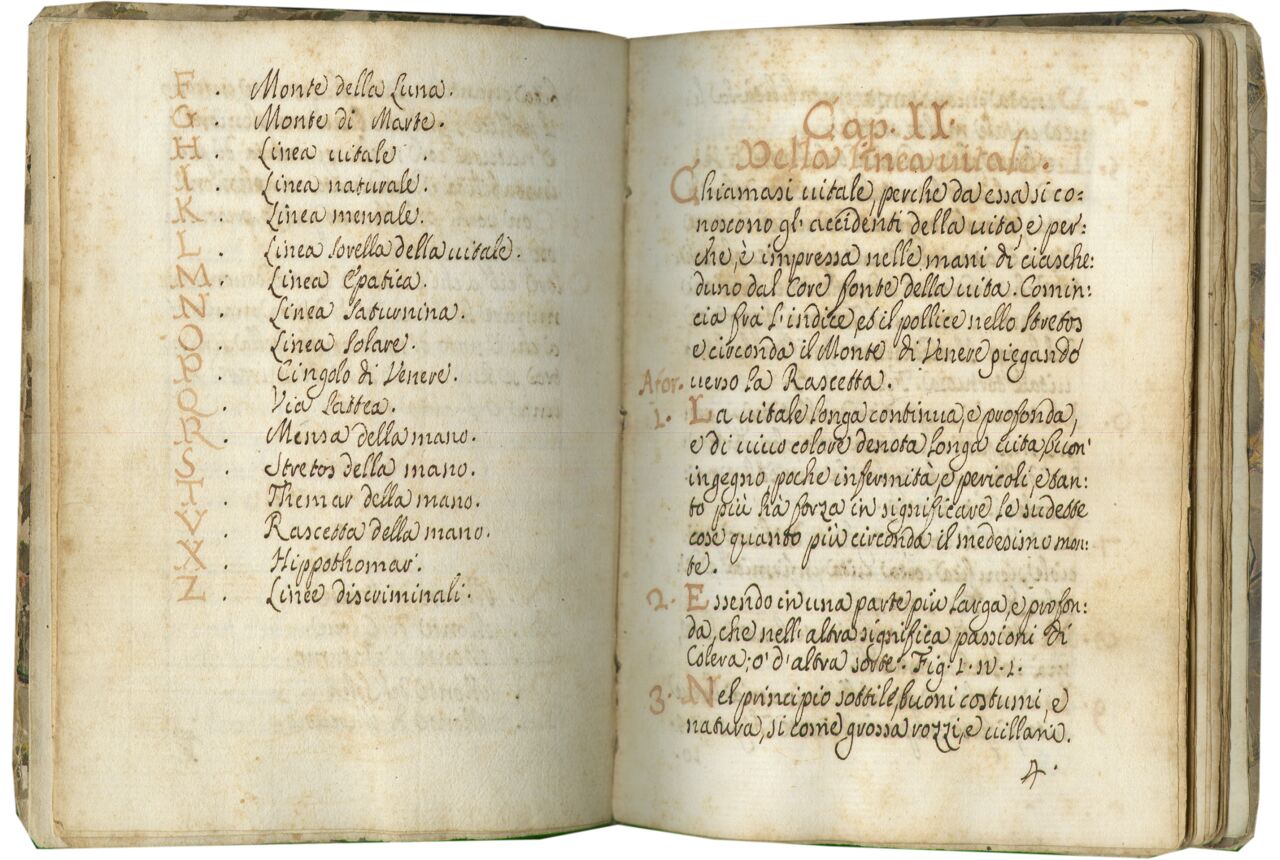 F . Monte della Luna.
G . Monte di Marte.
H . Linea uitale
I . Linea naturale.
K . Linea mensale.
L . Linea sorella della uitale.
M . Linea Epatica.
N . Linea saturnina.
O . Linea solare.
P . Cingolo di Venere.
Q . Via lattea.
R . Mensa della mano.
S . Stretos della mano.
T . Themar della mano.
V . Rascetta della mano.
X . Hippothomar.
Z . Linee discriminali.
Cap. II.
Della linea uitale.
Chiamasi uitale, perche da essa si co:
noscono gl' accidenti della uita, e per:
che, è impressa nelle mani di ciasche:
duno dal Core fonte della uita. Comin:
cia frà l'indice, et il pollice nello stretos
e circonda il Monte di Venere piegando
uerso la Rascetta.
Afor.
1. La uitale longa continua, e profonda,
e di uiuo colore denota longa uita buon'
ingegno, poche infermità, e pericoli, e tan:
to più hà forza in significare le sudette
cose quanto più circonda il medesimo mon:
te.
2. Essendo in una parte più larga, e profon:
da, che nell' altra significa passioni di
Colera; o' d'altra sorte. Fig. 1. n. 1.
3. Nel principio sottile, buoni costumi, e
natura, si come grossa rozzi, e uillani.
4.